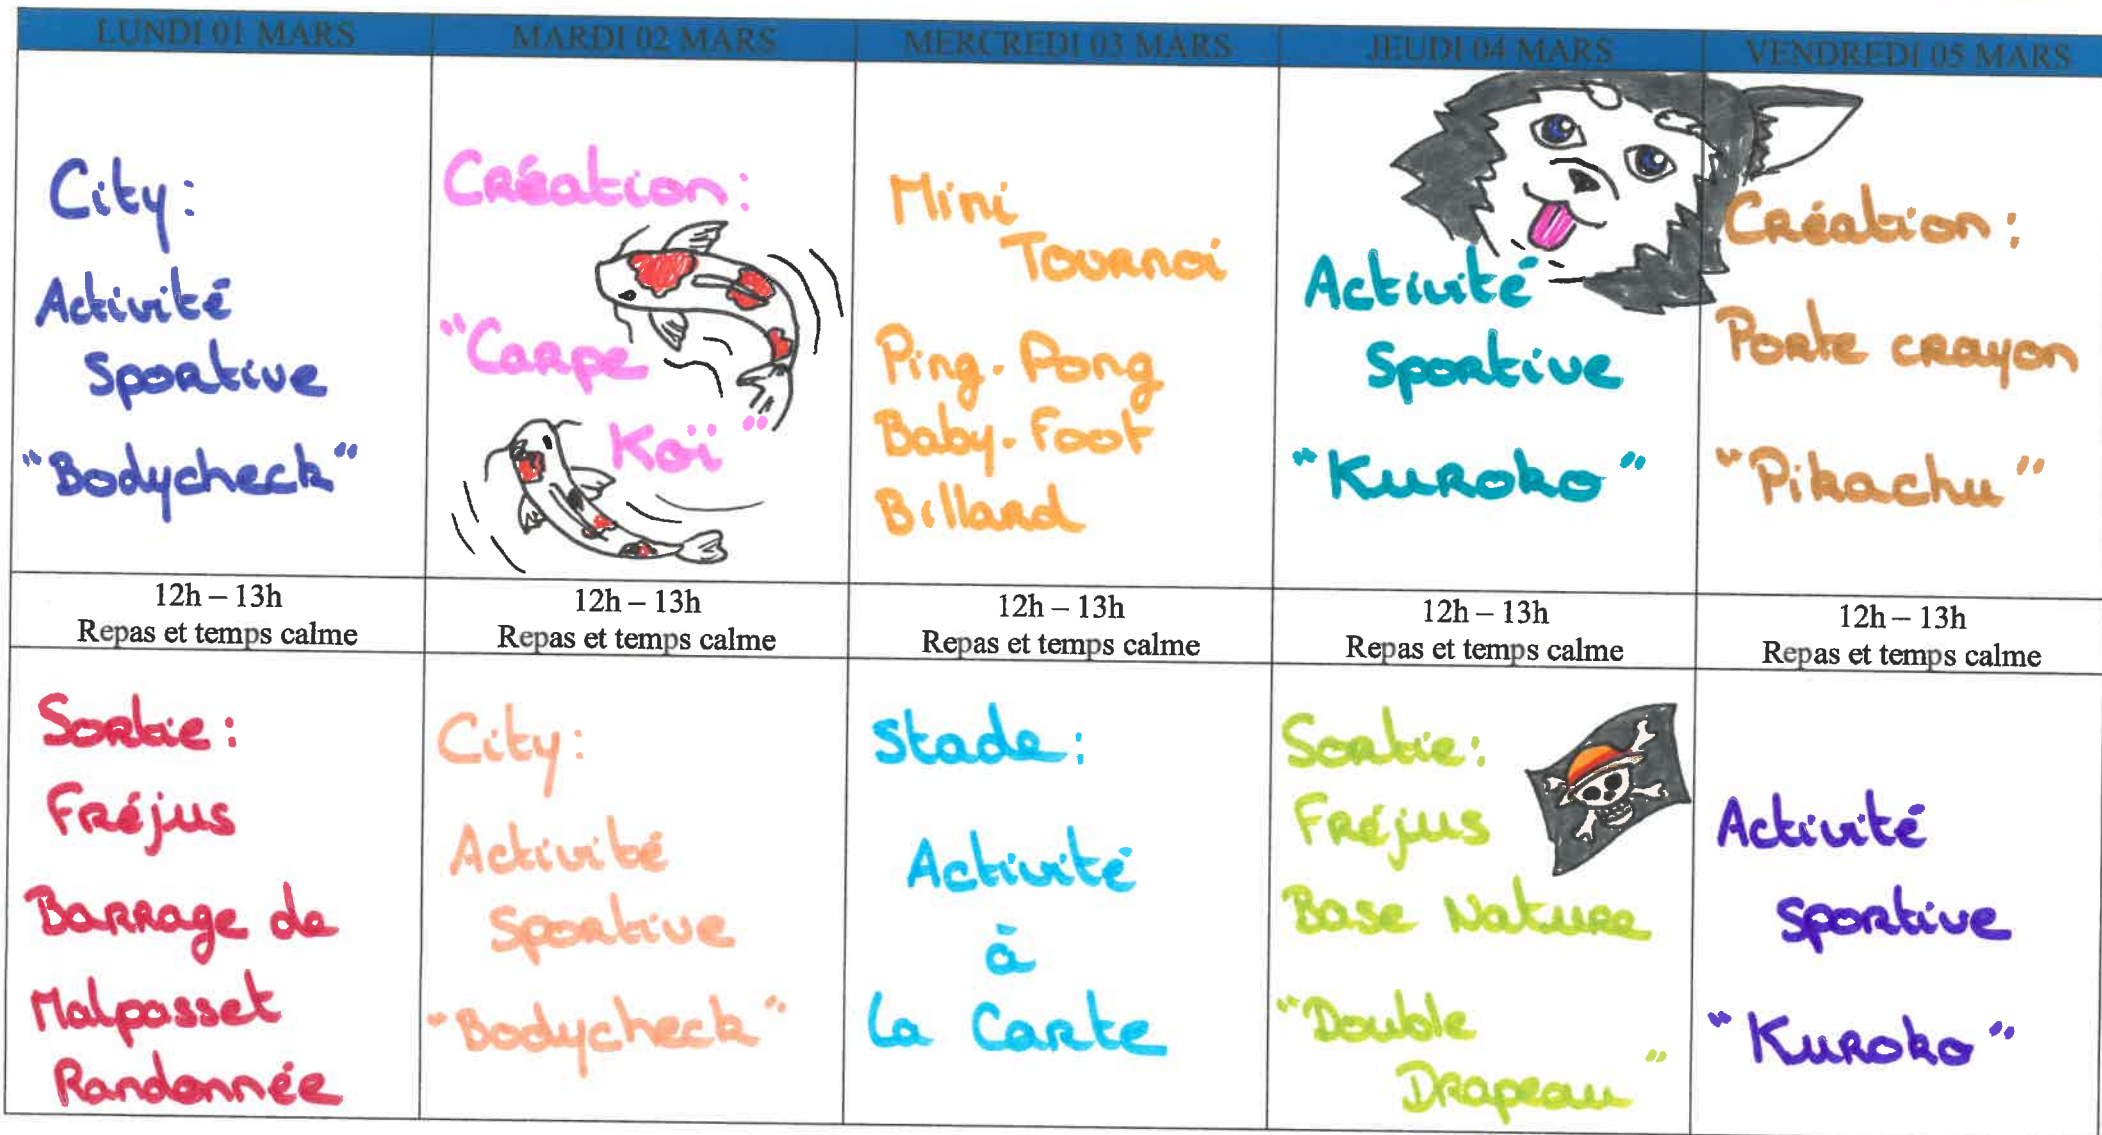 LUNDI 01 MARS
MARDI 02 MARS
MERCREDI 03 MARS
JEUDI 04 MARS
VENDREDI 05 MARS
City:
Activité
Sportive
"Bodycheck"
Création:
"Carpe
Koï"
Mini
Tournoi
Ping-Pong
Baby-Foot
Billard
Activité
Sportive
"Kuroko"
Création:
Porte crayon
"Pikachu"
12h – 13h
Repas et temps calme
12h – 13h
Repas et temps calme
12h – 13h
Repas et temps calme
12h – 13h
Repas et temps calme
12h – 13h
Repas et temps calme
Sortie:
Fréjus
Barrage de
Malpasset
Randonnée
City:
Activité
Sportive
"Bodycheck"
Stade:
Activité
à
la Carte
Sortie:
Fréjus
Base Nature
"Double
Drapeau"
Activité
Sportive
"Kuroko"